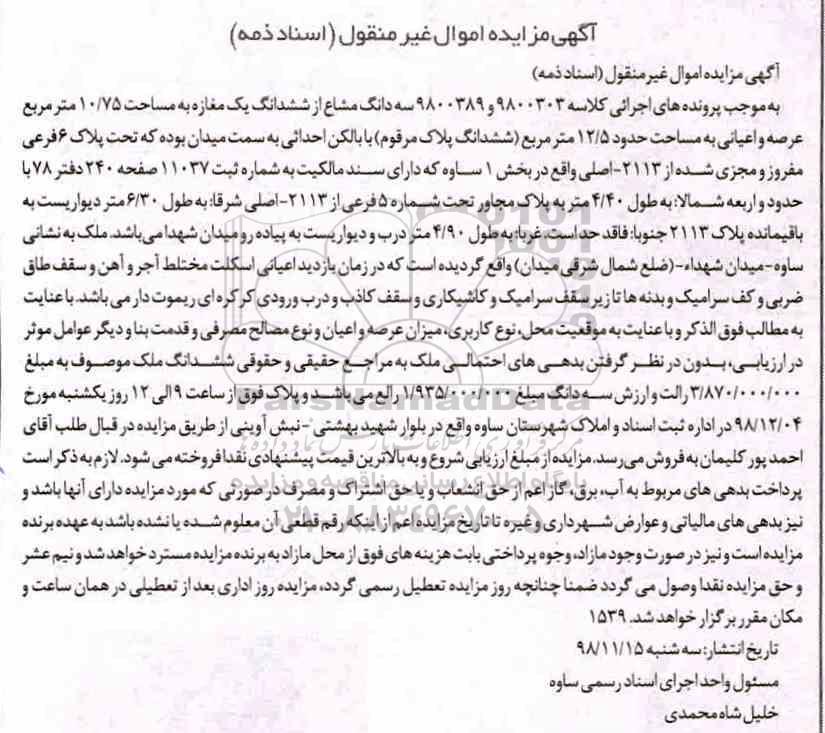 آگهی مزایده اموال غیر منقول (اسناد ذمه)
آگهی مزایده اموال غیر منقول (اسناد ذمه)
به موجب پرونده های اجرائی کلاسه ۹۸۰۰۳۰۳ و ۹۸۰۰۳۸۹ سه دانگ مشاع از ششدانگ یک مغازه به مساحت ۱۰/۷۵ متر مربع
عرصه و اعیانی به مساحت حدود ۱۲/۵ متر مربع (ششدانگ پلاک مرقوم) با بالکن احداثی به سمت میدان بوده که تحت پلاک ۶ فرعی
مفروز و مجزی شده از ۲۱۱۳-اصلی واقع در بخش ۱ ساوه که دارای سند مالکیت به شماره ثبت ۱۱۰۳۷ صفحه ۲۴۰ دفتر ۷۸ با
حدود و اربعه شمالا: به طول ۴/۴۰ متر به پلاک مجاور تحت شماره ۵ فرعی از ۲۱۱۳-اصلی شرقا: به طول ۶/۳۰ متر دیواریست به
باقیمانده پلاک ۲۱۱۳ جنوبا: فاقد حد است. غربا: به طول ۴/۹۰ متر درب و دیواریست به پیاده رو میدان شهدا می‌باشد. ملک به نشانی
ساوه-میدان شهداء-(ضلع شمال شرقی میدان) واقع گردیده است که در زمان بازدید اعیانی اسکلت مختلط آجر و آهن و سقف طاق
ضربی و کف سرامیک و بدنه ها تا زیر سقف سرامیک و کاشیکاری و سقف کاذب و درب ورودی کرکره ای ریموت دار می باشد. با عنایت
به مطالب فوق الذکر و با عنایت به موقعیت محل، نوع کاربری، میزان عرصه و اعیان و نوع مصالح مصرفی و قدمت بنا و دیگر عوامل موثر
در ارزیابی، بدون در نظر گرفتن بدهی های احتمالی ملک به مراجع حقیقی و حقوقی ششدانگ ملک موصوف به مبلغ
۳/۸۷۰/۰۰۰/۰۰۰ رالت و ارزش سه دانگ مبلغ ۱/۹۳۵/۰۰۰/۰۰۰ رالع می باشد و پلاک فوق از ساعت ۹ الی ۱۲ روز یکشنبه مورخ
۹۸/۱۲/۰۴ در اداره ثبت اسناد و املاک شهرستان ساوه واقع در بلوار شهید بهشتی -نبش آوینی از طریق مزایده در قبال طلب آقای
احمد پور کلیمان به فروش می رسد. مزایده از مبلغ ارزیابی شروع و به بالاترین قیمت پیشنهادی نقدا فروخته می شود. لازم به ذکر است
پرداخت بدهی های مربوط به آب، برق، گاز اعم از حق انشعاب و یا حق اشتراک و مصرف در صورتی که مورد مزایده دارای آنها باشد و
نیز بدهی های مالیاتی و عوارض شهرداری و غیره تا تاریخ مزایده اعم از اینکه رقم قطعی آن معلوم شده یا نشده باشد به عهده برنده
مزایده است و نیز در صورت وجود مازاد، وجوه پرداختی بابت هزینه های فوق از محل مازاد به برنده مزایده مسترد خواهد شد و نیم عشر
و حق مزایده نقدا وصول می گردد ضمنا چنانچه روز مزایده تعطیل رسمی گردد، مزایده روز اداری بعد از تعطیلی در همان ساعت و
مکان مقرر برگزار خواهد شد. ۱۵۳۹
تاریخ انتشار: سه شنبه ۹۸/۱۱/۱۵
مسئول واحد اجرای اسناد رسمی ساوه
خلیل شاه محمدی
ParsNamadData
پایگاه اطلاع رسانی مناقصه و مزایده